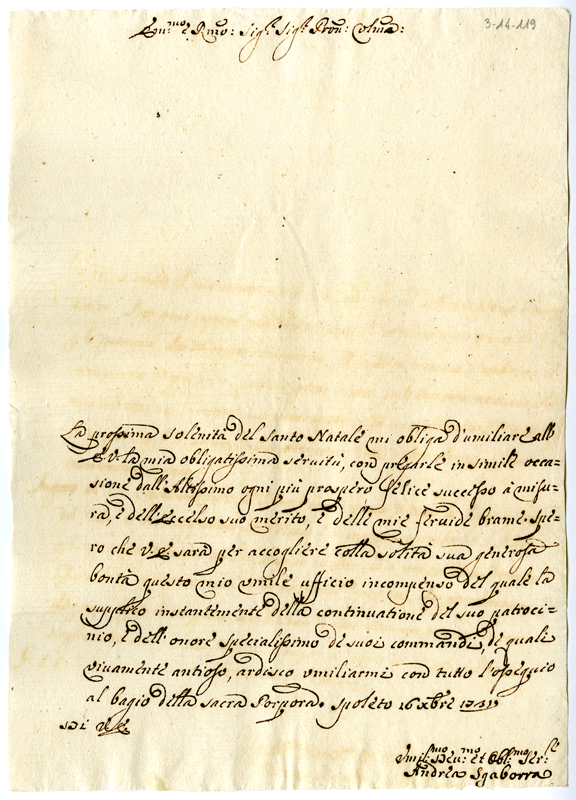 3-14-119
Em:mo e Rmo: Sig:r Sig:r Pron: Colmo:
La prossima solenità del Santo Natale mi obliga d'umiliare all'
E.V. la mia obligatissima servitù, con pregarle in simile occa=
sione dall'Altissimo ogni più prospero, e felice successo à misu=
ra, è dell'eccelso suo merito, è delle mie fervide brame. Spe=
ro che V.E. sarà per accogliere colla solita sua generosa
bontà questo mio umile ufficio incompenso del quale la
supplico instantemente della continuatione del suo patroci=
nio, è dell'onore specialissimo de suoi commandi, de quali
vivamente antioso, ardisco umiliarmi con tutto l'ossequio
al bagio della sacra Porpora. Spoleto 16 Xbre
Di V.E.
Umil:mo Dev:mo et Obl:mo Ser:re
Andrea Sgaborra